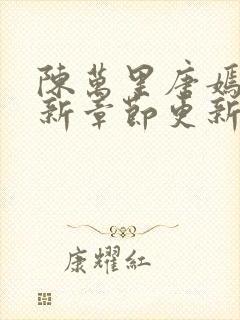 陳萬里唐嫣
新章節更新
康耀紅